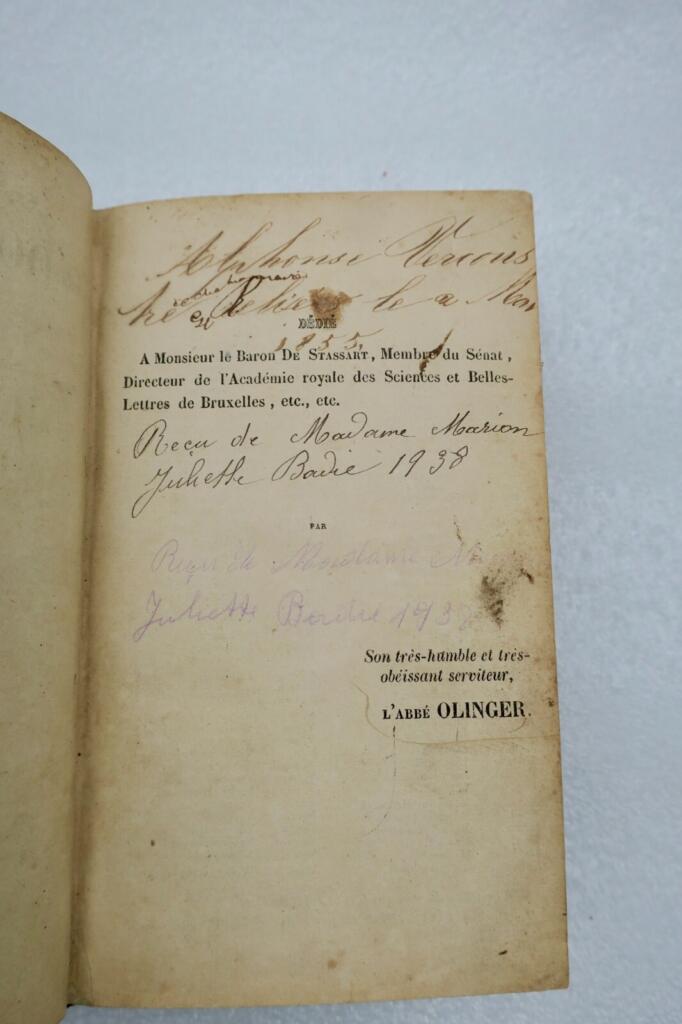 Alphonse
le 2
1855
DÉDIÉ
A Monsieur le Baron DE STASSART, Membre du Sénat,
Directeur de l'Académie royale des Sciences et Belles-
Lettres de Bruxelles, etc., etc.
Reçu de Madame Marion
Juliette Badié 1938
PAR
Reçu de Madame
Juliette 1938
Son très-humble et très-
obéissant serviteur,
L'ABBÉ OLINGER.